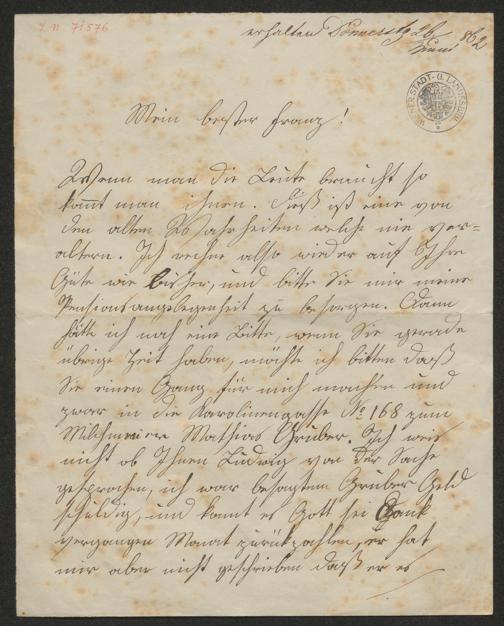 I.N 71576
erhalten Donnerstg 26/
Juni 862
WIENER STADT- U. LANDESBIBL.
Mein bester Franz!
Wenn man die Leute braucht so
kommt man ihnen. Dieß ist eine von
den alten Wahrheiten welche nie ver=
altern. Ich rechne also wieder auf Ihre
Güte wie bisher, und bitte Sie mir meine
Pensionsangelegenheit zu besorgen. Dann
hätte ich noch eine Bitte, wenn Sie gerade
übrige Zeit haben, möchte ich bitten daß
Sie einen Gang für mich machen und
zwar in die Karolinengasse No 168 zum
Milchmeier Mathias Gruber. Ich weis
nicht ob Ihnen Ludwig von der Sache
gesprochen, ich war besagtem Gruber Geld
schuldig, und konnt es Gott sei Dank
vergangen Monat zurückzahlen, er hat
mir aber nicht geschrieben daß er es